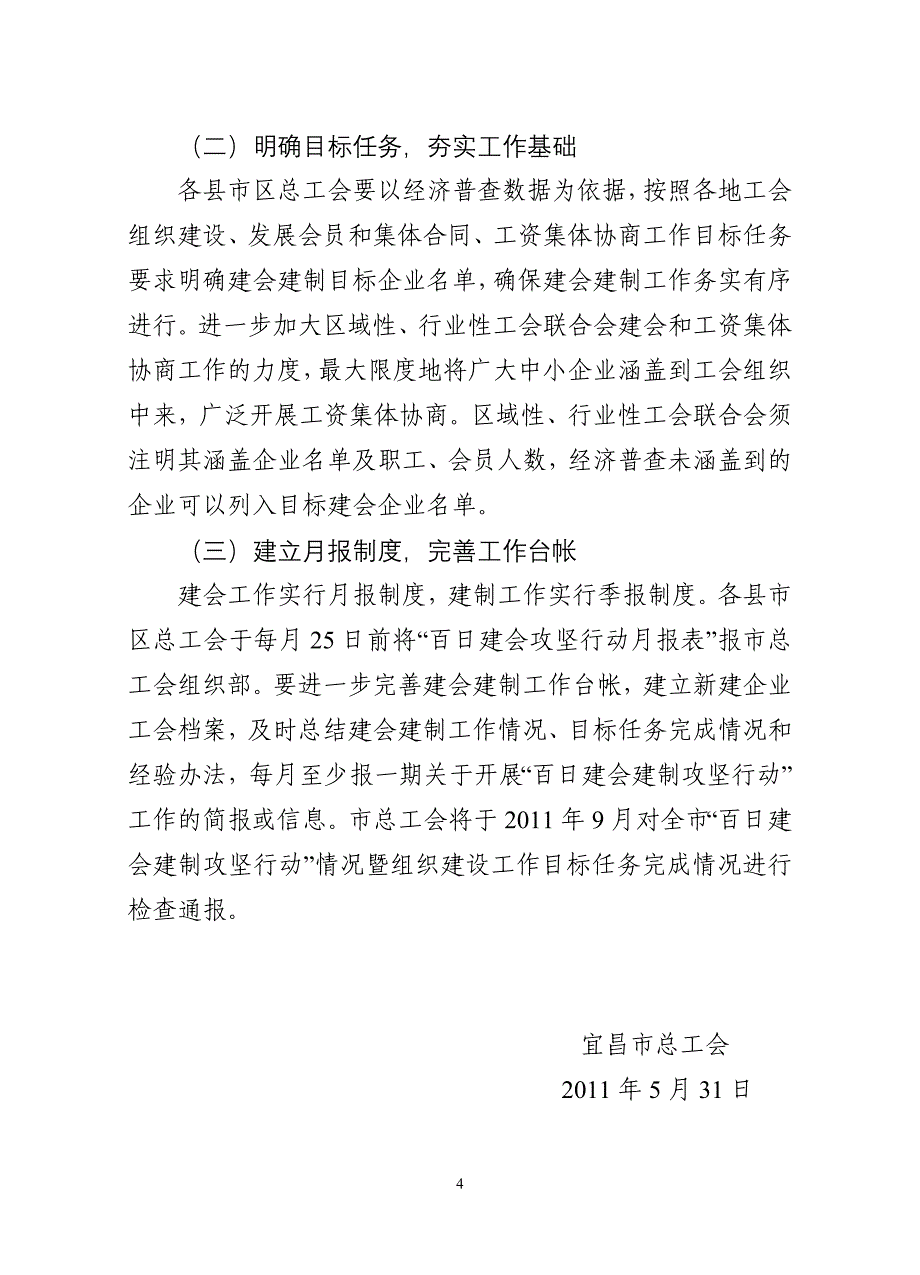 （二）明确目标任务，夯实工作基础
各县市区总工会要以经济普查数据为依据，按照各地工会
组织建设、发展会员和集体合同、工资集体协商工作目标任务
要求明确建会建制目标企业名单，确保建会建制工作务实有序
进行。进一步加大区域性、行业性工会联合会建会和工资集体
协商工作的力度，最大限度地将广大中小企业涵盖到工会组织
中来，广泛开展工资集体协商。区域性、行业性工会联合会须
注明其涵盖企业名单及职工、会员人数，经济普查未涵盖到的
企业可以列入目标建会企业名单。
（三）建立月报制度，完善工作台帐
建会工作实行月报制度，建制工作实行季报制度。各县市
区总工会于每月 25 日前将“百日建会攻坚行动月报表”报市总
工会组织部。要进一步完善建会建制工作台帐，建立新建企业
工会档案，及时总结建会建制工作情况、目标任务完成情况和
经验办法，每月至少报一期关于开展“百日建会建制攻坚行动”
工作的简报或信息。市总工会将于 2011 年 9 月对全市“百日建
会建制攻坚行动”情况暨组织建设工作目标任务完成情况进行
检查通报。
宜昌市总工会
2011 年 5 月 31 日
4